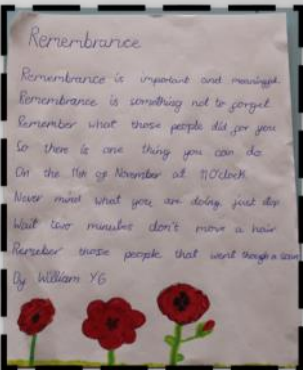 Remembrance
Remembrance is important and meaningful
Remembrance is something not to forget
Remember what those people did for you
So there is one thing you can do
On the 11th of November at 11 O'clock
Never mind what you are doing, just stop
Wait two minutes don't move a hair
Remeber those people that went though a
By William Y6